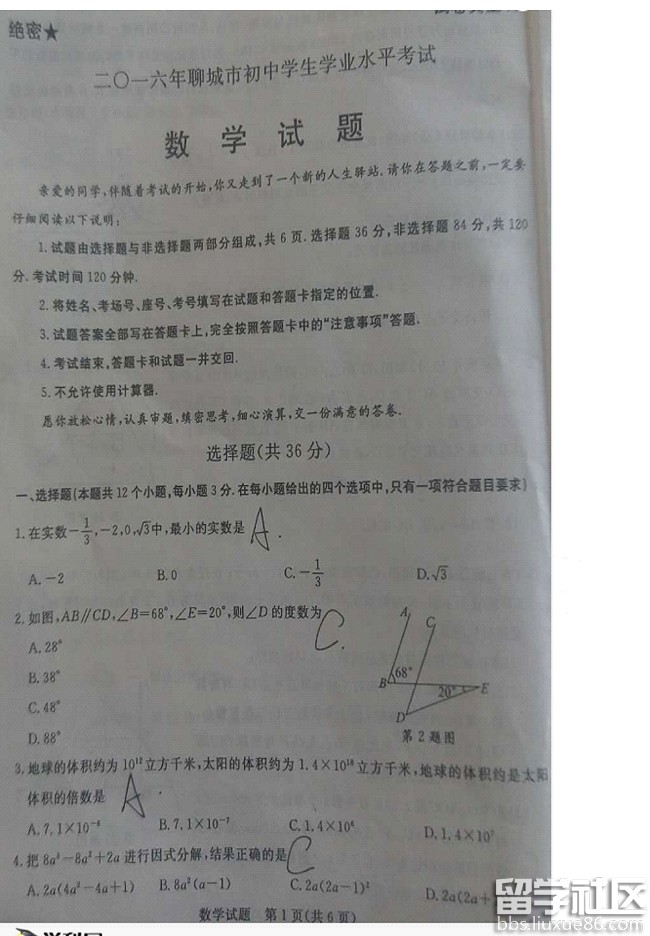 绝密★
二〇一六年聊城市初中学生学业水平考试
数 学 试 题
亲爱的同学,伴随着考试的开始,你又走到了一个新的人生驿站.请你在答题之前,一定要
仔细阅读以下说明:
1.试题由选择题与非选择题两部分组成,共 6 页.选择题 36 分,非选择题 84 分,共 120
分.考试时间 120 分钟.
2.将姓名、考场号、座号、考号填写在试题和答题卡指定的位置.
3.试题答案全部写在答题卡上,完全按照答题卡中的“注意事项”答题.
4.考试结束,答题卡和试题一并交回.
5.不允许使用计算器.
愿你放松心情,认真审题,缜密思考,细心演算,交一份满意的答卷.
选择题(共 36 分)
一、选择题(本题共 12 个小题,每小题 3 分.在每小题给出的四个选项中,只有一项符合题目要求)
1.在实数-1/3,-2,0,√3中,最小的实数是 A.
A.-2 B.0 C.-1/3 D.√3
2.如图,AB∥CD,∠B=68°,∠E=20°,则∠D 的度数为 C.
A.28°
B.38°
C.48°
D.88°
A C
B 68° 20° E
D
第 2 题图
3.地球的体积约为 10¹²立方千米,太阳的体积约为 1.4×10¹⁸立方千米,地球的体积约是太阳
体积的倍数是 A.
A.7.1×10⁻⁶ B.7.1×10⁻⁷ C.1.4×10⁶ D.1.4×10⁷
4.把 8a³-8a²+2a 进行因式分解,结果正确的是 C
A.2a(4a²-4a+1) B.8a²(a-1) C.2a(2a-1)² D.2a(2a+
数学试题 第 1 页(共 6 页)
留学社区
bbs.liuxue86.com